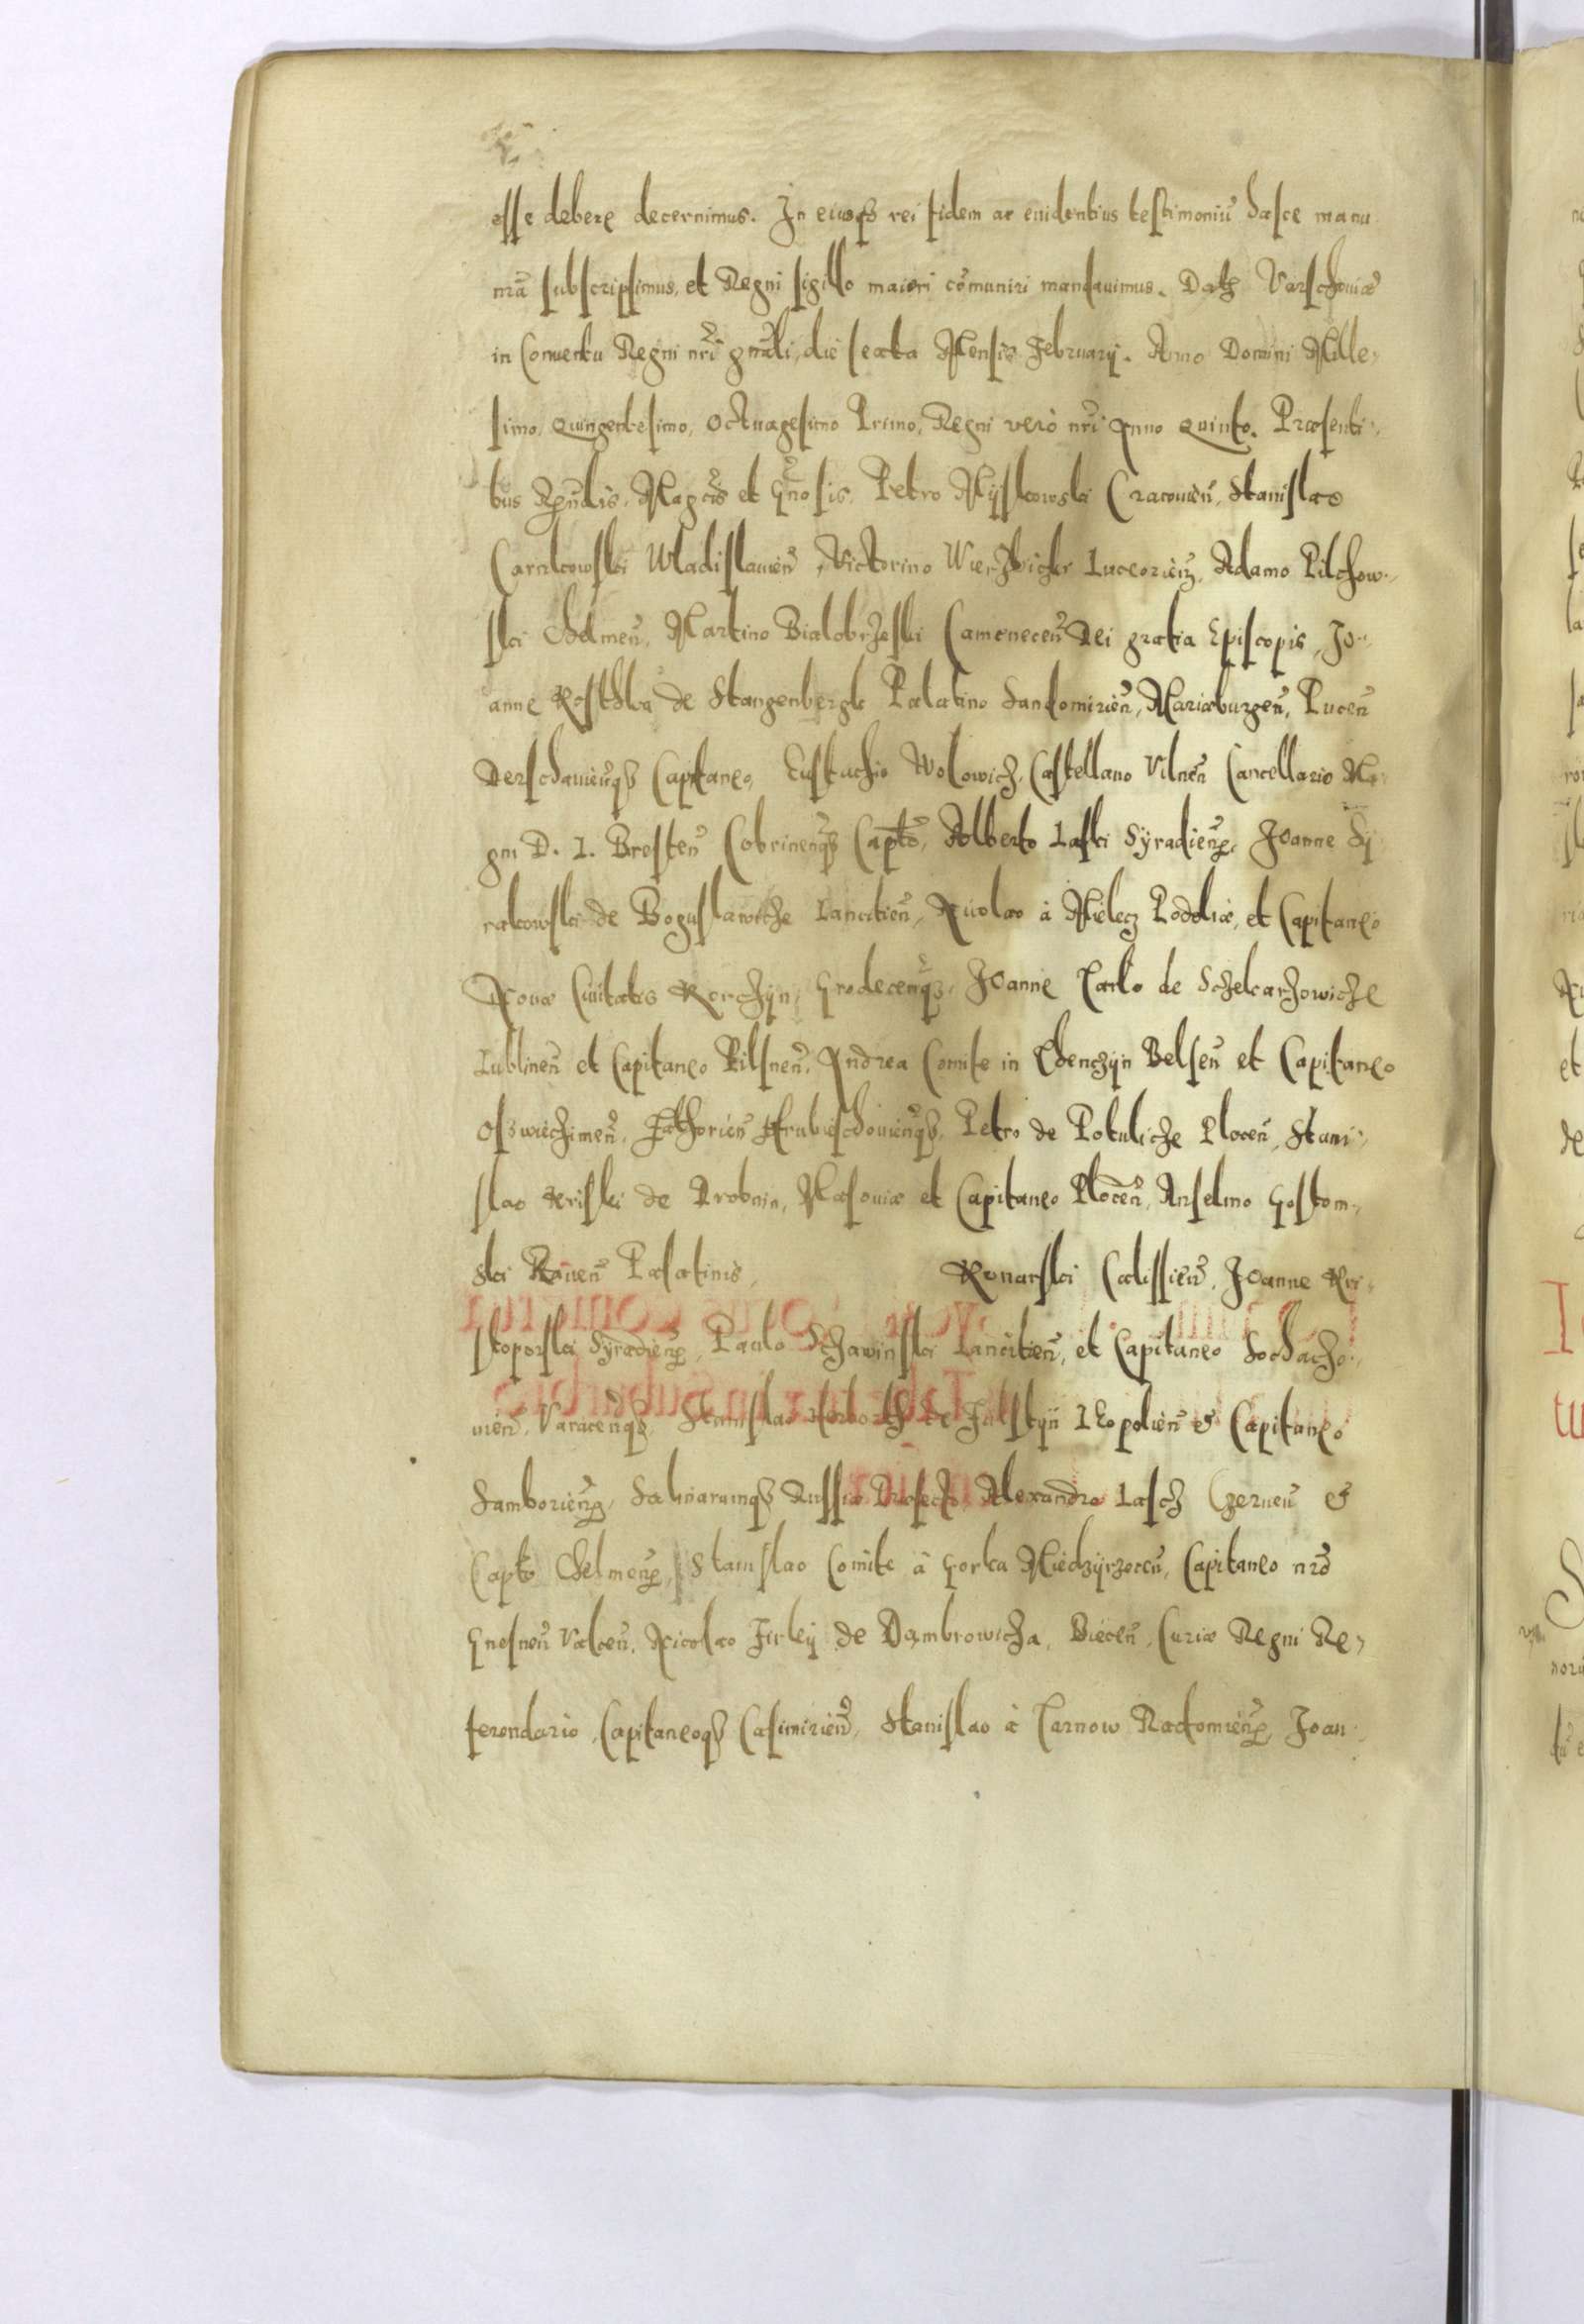 esse debere decernimus. In eiusqȝ rei fidem ac euidentius testimoniū hasce manu
nr̄a subscripsimus, et Regni sigillo maiori cōmuniri mandauimus. Datȝ Varschouiæ
in Conuentu Regni nr̄i gn̄ali, die sexta Mensis February. Anno Domini Mille-
simo, Quingentesimo, Octuagesimo Primo, Regni verò nr̄i Anno Quinto. Præsenti-
bus Rn̄dis, Magcis et Gn̄osis, Petro Myskowski Cracouien̄, Stanislao
Carnkowski Wladislauien̄, Victorino Wierzbiczki Luceorien̄, Adamo Pilchow-
ski Chelmen̄, Martino Bialobrzeski Camenecen̄ Dei gratia Episcopis, Jo-
anne Kosthka de Stangenbergk Palatino Sandomirien̄, Mariæburgen̄, Pucen̄
Derschauien̄qȝ Capitaneo, Eustachio Wolowicz, Castellano Vilnen̄ Cancellario Ma-
gni D. L. Bresten̄ Cobrinen̄qȝ Capto, Alberto Laski Syradien̄, Joanne Sy
rakowski de Boguslawicze Lancitien̄, Nicolao à Mielecz Podoliæ, et Capitaneo
Nouæ Ciuitatis Korczyn, Grodecen̄qȝ, Joanne Tarlo de Sczekarzowicze
Lublinen̄ et Capitaneo Pilsnen̄, Andrea Comite in Thenczyn Belsen̄ et Capitaneo
Oswieczimen̄, Zathorien̄ Hrubieschouien̄qȝ, Petro de Potulicze Plocen̄, Stani-
slao Kriski de Drobnin, Masouiæ et Capitaneo Plocen̄, Anselmo Gostom-
ski Rauen̄ Palatinis, Konarski Calissien̄, Joanne Kri-
stoporski Syradien̄, Paulo Sczawinski Lancitien̄, et Capitaneo Sochacho-
uien̄, Stanislao Herborth de Fulstyn Leopolien̄ & Capitaneo
Samborien̄, Salinarumqȝ Russiæ Præfecto, Alexandro Lasch Czernen̄ &
Capto Chelmen̄, Stanislao Comite à Gorka Miedzyrzecen̄, Capitaneo nr̄o
Gnesnen̄ Valcen̄, Nicolao Firley de Dambrowicza, Biecen̄, Curiæ Regni Re-
ferendario, Capitaneoqȝ Casimirien̄, Stanislao à Tarnow Radomien̄, Joan